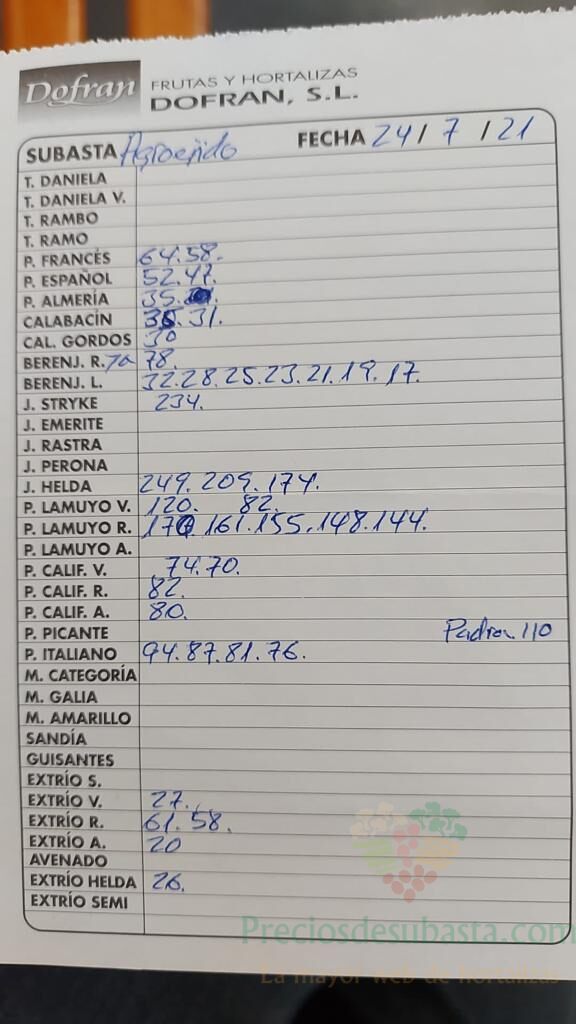 Dofran FRUTAS Y HORTALIZAS
DOFRAN, S.L.
SUBASTA Agroejido FECHA 24/7/21
T. DANIELA
T. DANIELA V.
T. RAMBO
T. RAMO
P. FRANCÉS 64.58.
P. ESPAÑOL 52.47.
P. ALMERÍA 35.
CALABACÍN 35.31.
CAL. GORDOS 30
BERENJ. R. 70 78.
BERENJ. L. 32.28.25.23.21.19.17.
J. STRYKE 234.
J. EMERITE
J. RASTRA
J. PERONA
J. HELDA 249.209.174.
P. LAMUYO V. 120. 82.
P. LAMUYO R. 170.161.155.148.144.
P. LAMUYO A.
P. CALIF. V. 74.70.
P. CALIF. R. 82.
P. CALIF. A. 80.
P. PICANTE Padron 110
P. ITALIANO 94.87.81.76.
M. CATEGORÍA
M. GALIA
M. AMARILLO
SANDÍA
GUISANTES
EXTRÍO S.
EXTRÍO V. 27.
EXTRÍO R. 61.58.
EXTRÍO A. 20
AVENADO
EXTRÍO HELDA 26.
EXTRÍO SEMI
Preciosdesubasta.com
La mayor web de hortalizas